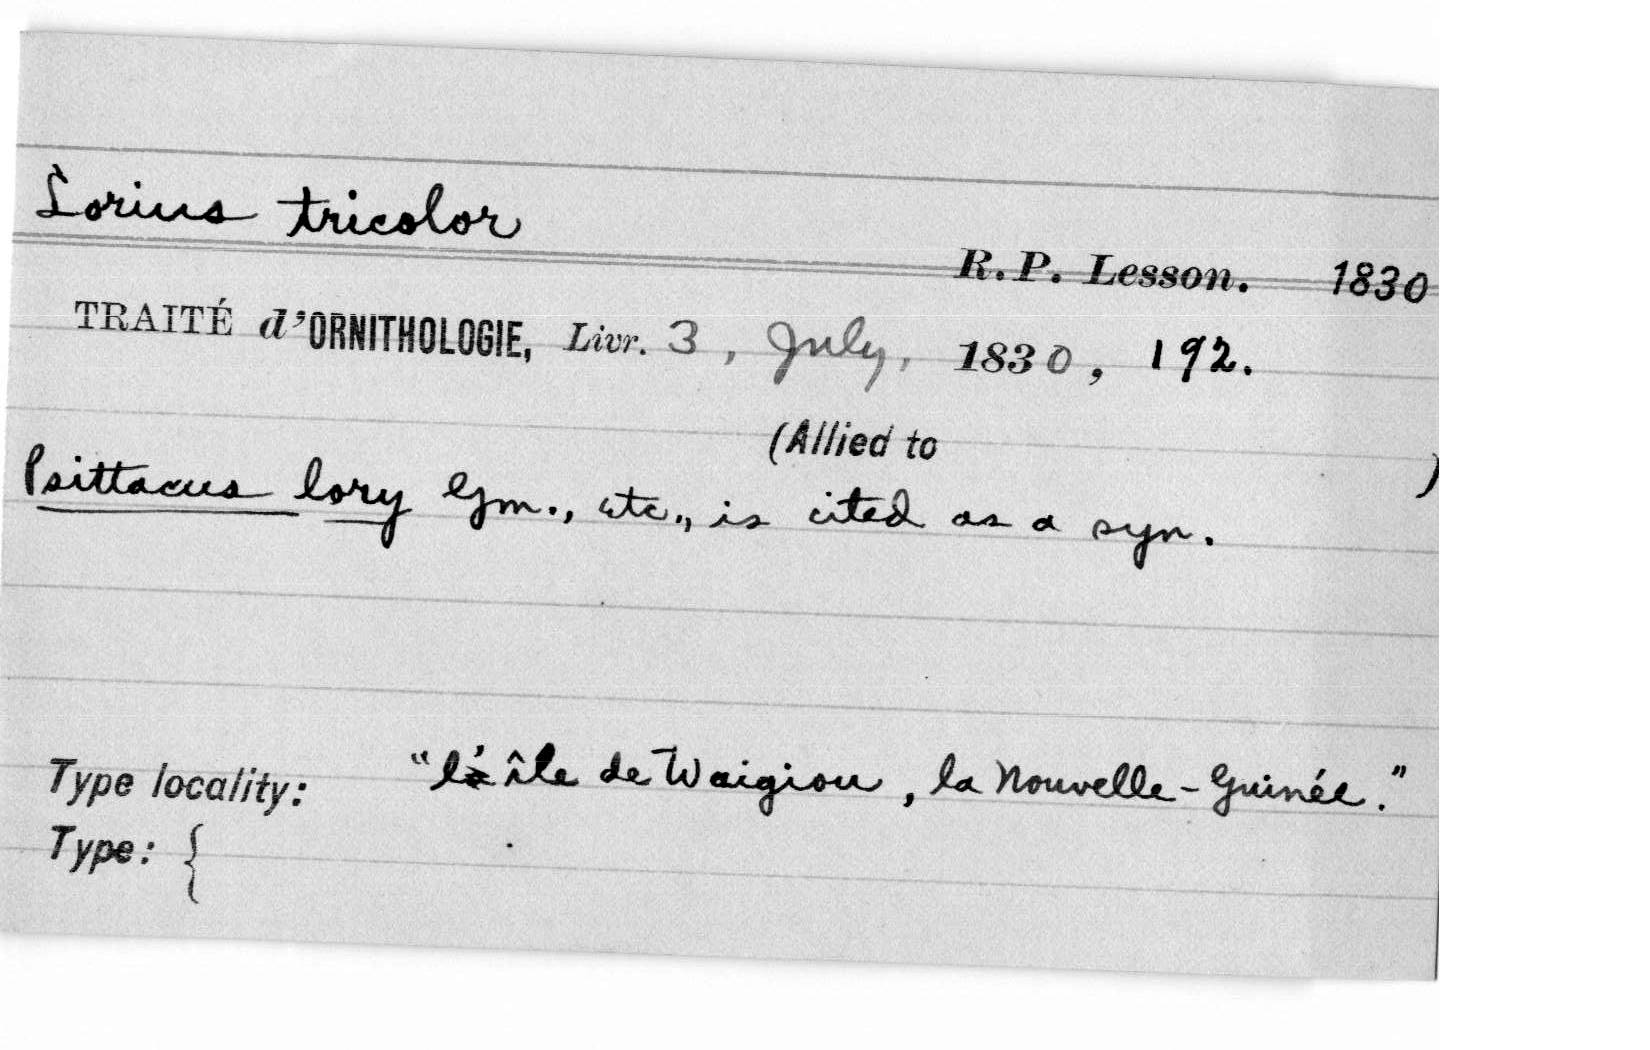 Lorius tricolor
R.P. Lesson. 1830
TRAITÉ d'ORNITHOLOGIE, Livr. 3, July, 1830, 192.
(Allied to )
Psittacus lory Gm., etc., is cited as a syn.
Type locality: "l'île de Waigiou, la Nouvelle-Guinée."
Type: {